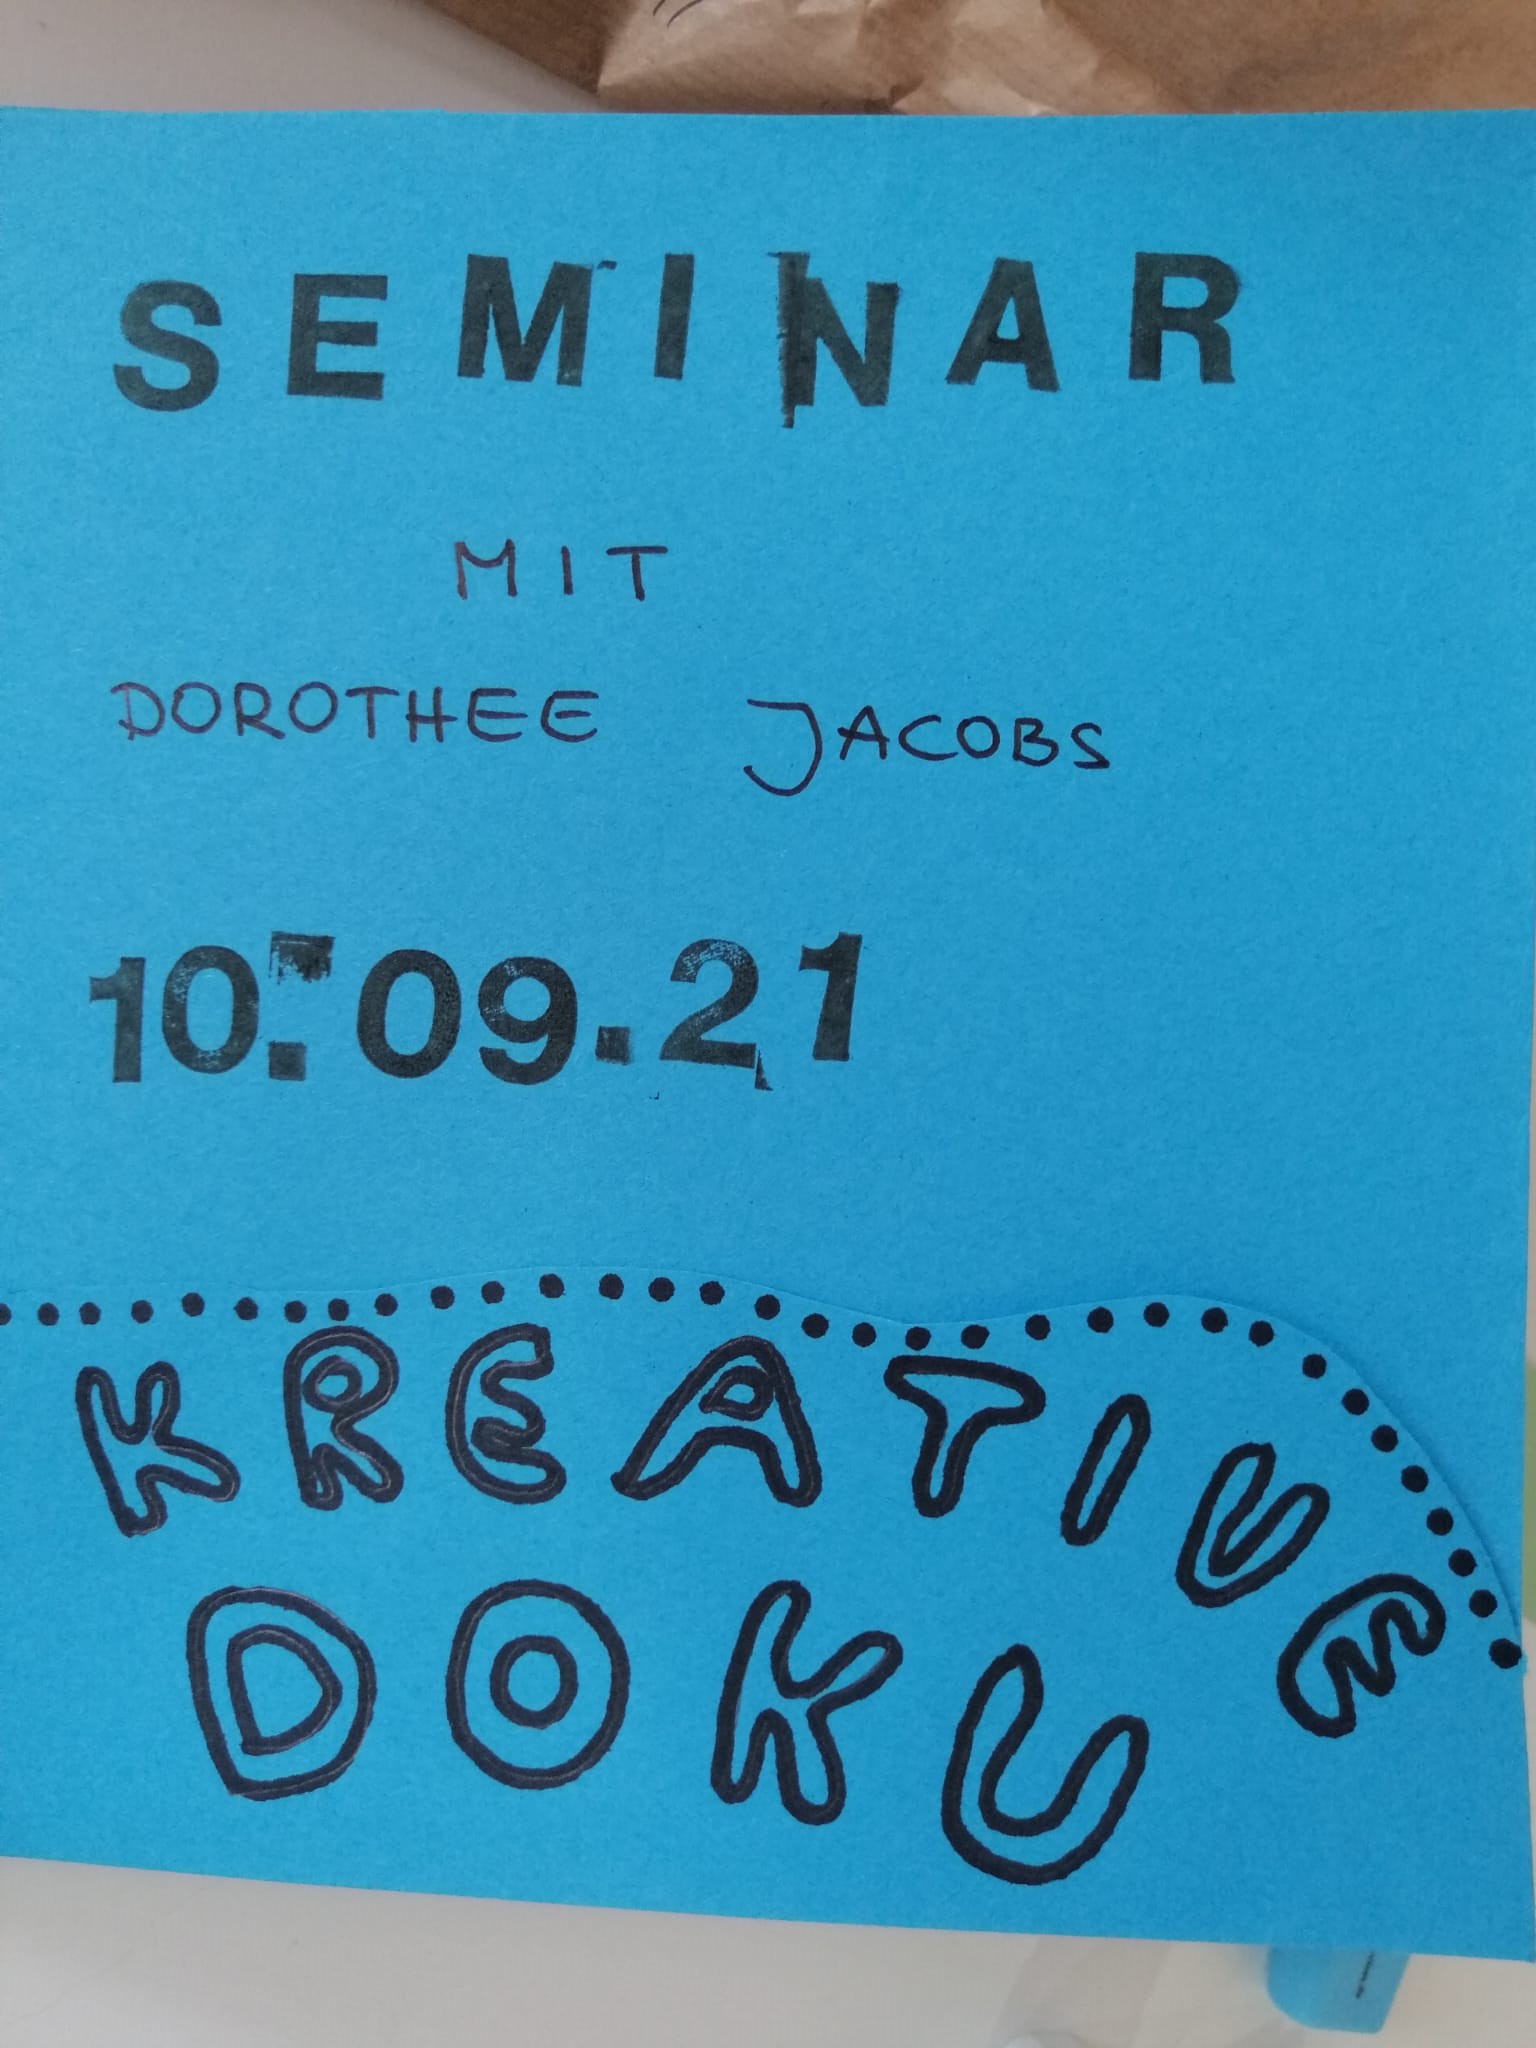 SEMINAR
MIT
DOROTHEE JACOBS
10.09.21
KREATIVE
DOKU